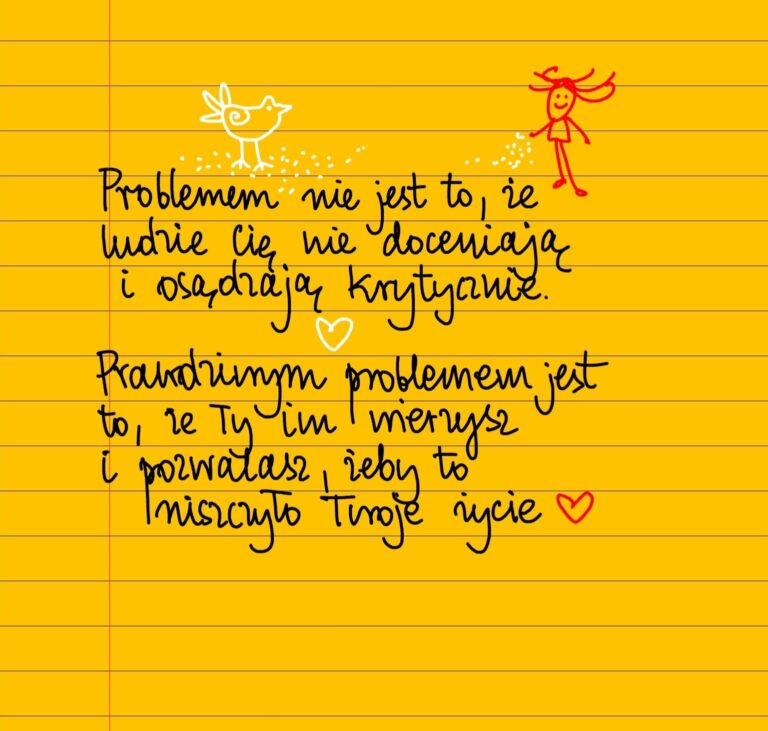 Problemem nie jest to, że
ludzie Cię nie doceniają
i osądzają krytycznie.
Prawdziwym problemem jest
to, że Ty im wierzysz
i pozwalasz, żeby to
niszczyło Twoje życie